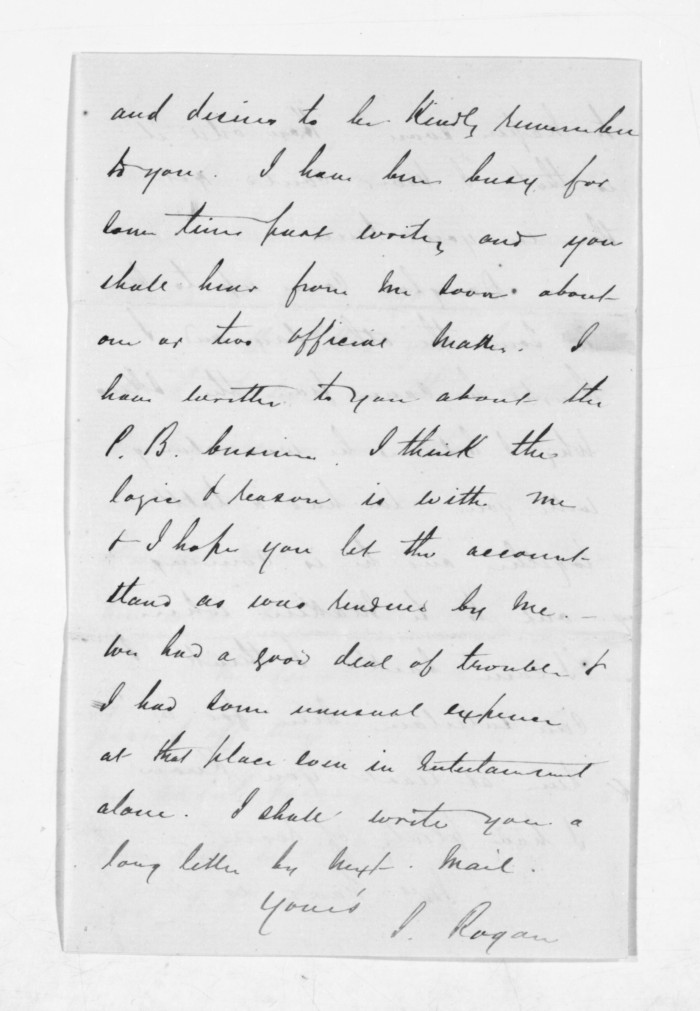 and desires to be Kindly remember
to you. I have been busy for
some time past writing and you
shall hear from me soon about
one or two official matters. I
have written to you about the
P. B. business. I think the
logic & reason is with me
& I hope you let the account
stand as was rendered by me. –
We had a good deal of trouble &
I had some unusual expense
at that place even in entertainment
alone. I shall write you a
long letter by next mail.
Yours
J. Rogan